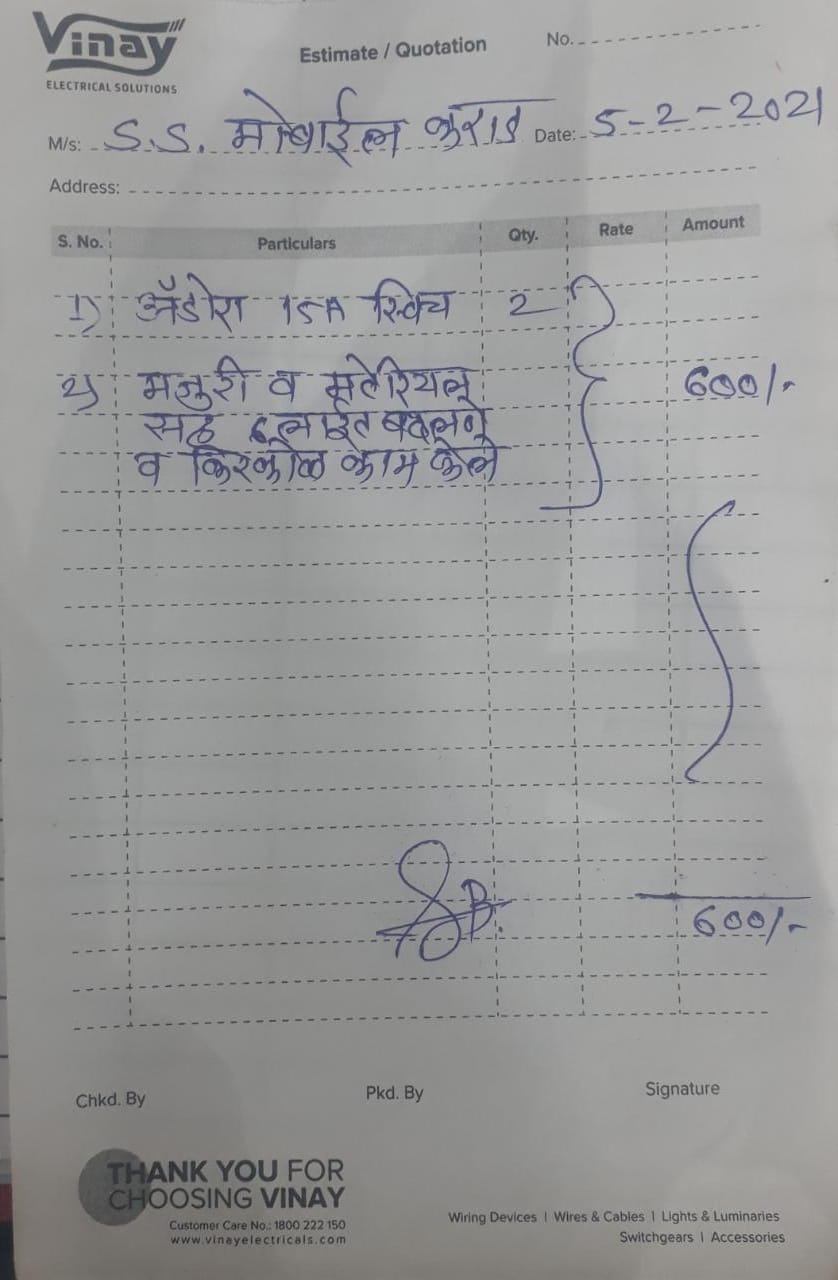 Vinay
ELECTRICAL SOLUTIONS
Estimate / Quotation
No.
M/s: S.S. मोबाईल कराड Date: 5-2-2021
Address:
S. No. Particulars Qty. Rate Amount
1) अँडोरा 15A स्विच 2
2) मजुरी व मटेरियल 600/-
सह लाईट बदलणे
व किरकोळ काम केले
600/-
Chkd. By Pkd. By Signature
THANK YOU FOR
CHOOSING VINAY
Customer Care No.: 1800 222 150
www.vinayelectricals.com
Wiring Devices | Wires & Cables | Lights & Luminaries
Switchgears | Accessories